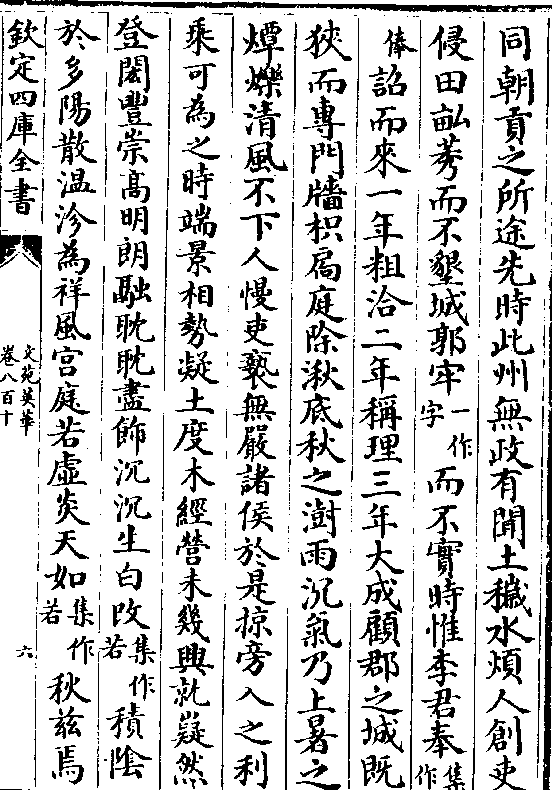 同朝貢之所途先時此州無政有聞土穢水煩人創吏
侵田畝莠而不墾城郭牢一作字而不實時惟李君奉集作
俸詔而來一年粗洽二年稱理三年大成顧郡之城既
狹而專門牆枳扄庭除湫底秋之澍雨沉氣乃上暑之
燂爍清風不下人慢吏褻無嚴諸侯於是掠旁入之利
乘可為之時端景相勢凝土度木經營未幾興就嶷然
登閎豐崇高明朗融耽耽盡飾沉沉生白改集作若積陰
於多陽散溫沴為祥風宫庭若虛炎天如集作若秋兹焉
欽定四庫全書
文苑英華
卷八百十
六